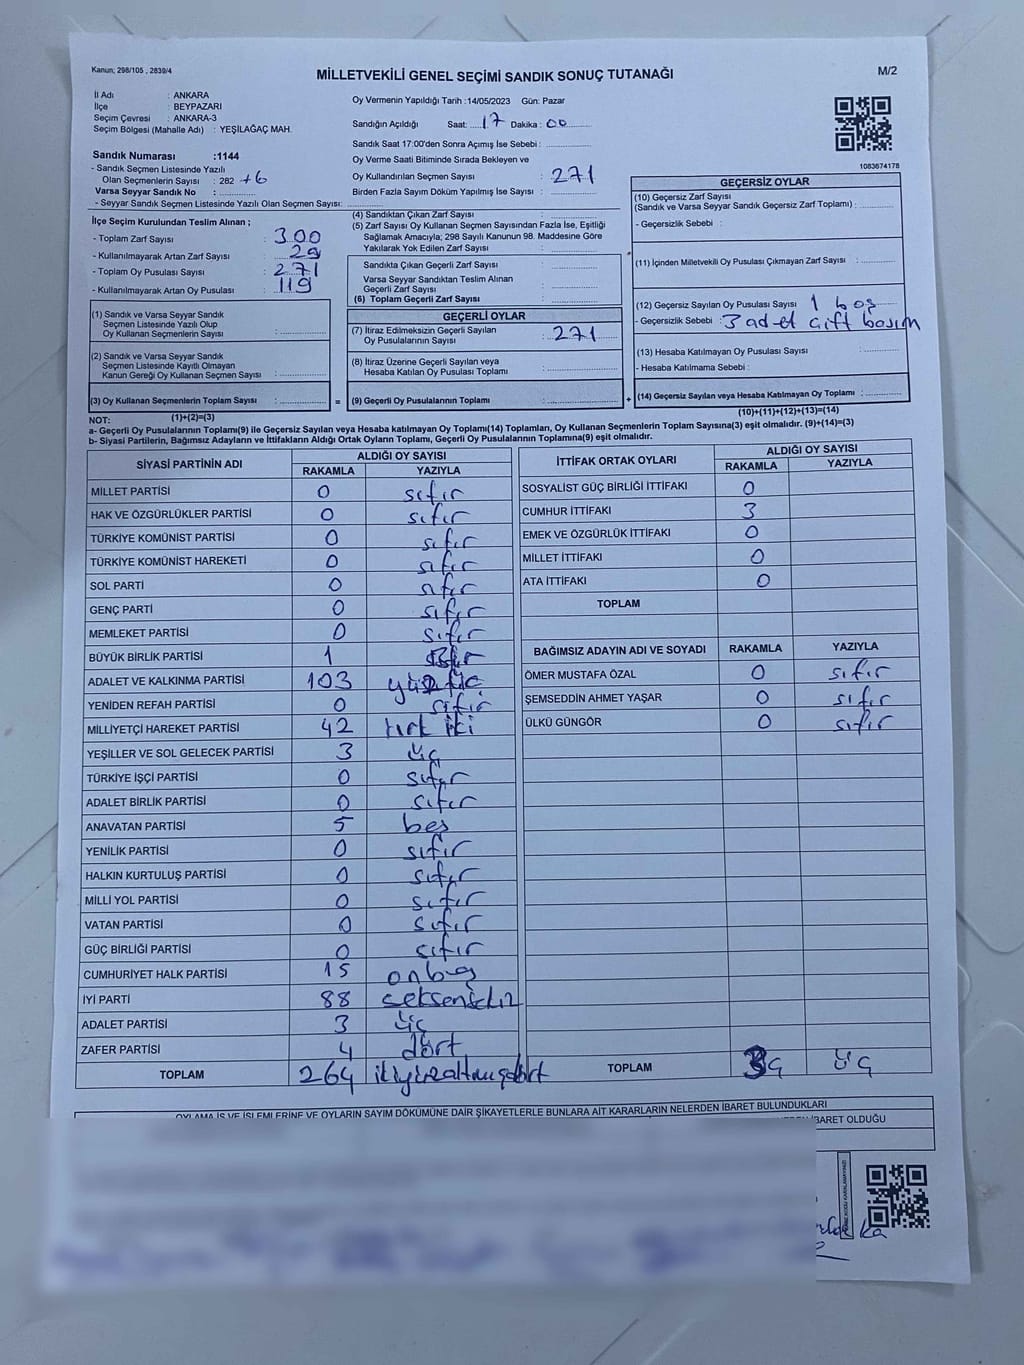 Kanun; 298/105 , 2839/4
MİLLETVEKİLİ GENEL SEÇİMİ SANDIK SONUÇ TUTANAĞI
M/2
İl Adı : ANKARA
İlçe : BEYPAZARI
Seçim Çevresi : ANKARA-3
Seçim Bölgesi (Mahalle Adı) : YEŞİLAĞAÇ MAH.
Sandık Numarası :1144
- Sandık Seçmen Listesinde Yazılı
Olan Seçmenlerin Sayısı : 282 +6
Varsa Seyyar Sandık No :
- Seyyar Sandık Seçmen Listesinde Yazılı Olan Seçmen Sayısı:
Oy Vermenin Yapıldığı Tarih :14/05/2023 Gün: Pazar
Sandığın Açıldığı Saat: 17 Dakika : 00
Sandık Saat 17:00'den Sonra Açımış İse Sebebi :
Oy Verme Saati Bitiminde Sırada Bekleyen ve
Oy Kullandırılan Seçmen Sayısı : 271
Birden Fazla Sayım Döküm Yapılmış İse Sayısı :
1083674178
İlçe Seçim Kurulundan Teslim Alınan ;
- Toplam Zarf Sayısı : 300
- Kullanılmayarak Artan Zarf Sayısı : 29
- Toplam Oy Pusulası Sayısı : 271
- Kullanılmayarak Artan Oy Pusulası : 119
(1) Sandık ve Varsa Seyyar Sandık
Seçmen Listesinde Yazılı Olup
Oy Kullanan Seçmenlerin Sayısı :
(2) Sandık ve Varsa Seyyar Sandık
Seçmen Listesinde Kayıtlı Olmayan
Kanun Gereği Oy Kullanan Seçmen Sayısı :
(3) Oy Kullanan Seçmenlerin Toplam Sayısı :
(4) Sandıktan Çıkan Zarf Sayısı :
(5) Zarf Sayısı Oy Kullanan Seçmen Sayısından Fazla İse, Eşitliği
Sağlamak Amacıyla; 298 Sayılı Kanunun 98. Maddesine Göre
Yakılarak Yok Edilen Zarf Sayısı :
Sandıkta Çıkan Geçerli Zarf Sayısı :
Varsa Seyyar Sandıktan Teslim Alınan
Geçerli Zarf Sayısı :
(6) Toplam Geçerli Zarf Sayısı :
GEÇERLİ OYLAR
(7) İtiraz Edilmeksizin Geçerli Sayılan
Oy Pusulalarının Sayısı : 271
(8) İtiraz Üzerine Geçerli Sayılan veya
Hesaba Katılan Oy Pusulası Toplamı :
= (9) Geçerli Oy Pusulalarının Toplamı :
GEÇERSİZ OYLAR
(10) Geçersiz Zarf Sayısı
(Sandık ve Varsa Seyyar Sandık Geçersiz Zarf Toplamı) :
- Geçersizlik Sebebi :
(11) İçinden Milletvekili Oy Pusulası Çıkmayan Zarf Sayısı :
(12) Geçersiz Sayılan Oy Pusulası Sayısı 1 boş
- Geçersizlik Sebebi : 3 adet çift basım
(13) Hesaba Katılmayan Oy Pusulası Sayısı :
- Hesaba Katılmama Sebebi :
+ (14) Geçersiz Sayılan veya Hesaba Katılmayan Oy Toplamı :
NOT: (1)+(2)=(3)
(10)+(11)+(12)+(13)=(14)
a- Geçerli Oy Pusulalarının Toplamı(9) ile Geçersiz Sayılan veya Hesaba katılmayan Oy Toplamı(14) Toplamları, Oy Kullanan Seçmenlerin Toplam Sayısına(3) eşit olmalıdır. (9)+(14)=(3)
b- Siyasi Partilerin, Bağımsız Adayların ve İttifakların Aldığı Ortak Oyların Toplamı, Geçerli Oy Pusulalarının Toplamına(9) eşit olmalıdır.
SİYASİ PARTİNİN ADI ALDIĞI OY SAYISI
RAKAMLA YAZIYLA
MİLLET PARTİSİ 0 sıfır
HAK VE ÖZGÜRLÜKLER PARTİSİ 0 sıfır
TÜRKİYE KOMÜNİST PARTİSİ 0 sıfır
TÜRKİYE KOMÜNİST HAREKETİ 0 sıfır
SOL PARTİ 0 sıfır
GENÇ PARTİ 0 sıfır
MEMLEKET PARTİSİ 0 sıfır
BÜYÜK BİRLİK PARTİSİ 1
ADALET VE KALKINMA PARTİSİ 103 yüz üç
YENİDEN REFAH PARTİSİ 0 sıfır
MİLLİYETÇİ HAREKET PARTİSİ 42 kırk iki
YEŞİLLER VE SOL GELECEK PARTİSİ 3 üç
TÜRKİYE İŞÇİ PARTİSİ 0 sıfır
ADALET BİRLİK PARTİSİ 0 sıfır
ANAVATAN PARTİSİ 5 beş
YENİLİK PARTİSİ 0 sıfır
HALKIN KURTULUŞ PARTİSİ 0 sıfır
MİLLİ YOL PARTİSİ 0 sıfır
VATAN PARTİSİ 0 sıfır
GÜÇ BİRLİĞİ PARTİSİ 0 sıfır
CUMHURİYET HALK PARTİSİ 15 onbeş
İYİ PARTİ 88 seksensekiz
ADALET PARTİSİ 3 üç
ZAFER PARTİSİ 4 dört
TOPLAM 264 ikiyüzaltmışdört
İTTİFAK ORTAK OYLARI ALDIĞI OY SAYISI
RAKAMLA YAZIYLA
SOSYALİST GÜÇ BİRLİĞİ İTTİFAKI 0
CUMHUR İTTİFAKI 3
EMEK VE ÖZGÜRLÜK İTTİFAKI 0
MİLLET İTTİFAKI 0
ATA İTTİFAKI 0
TOPLAM
BAĞIMSIZ ADAYIN ADI VE SOYADI RAKAMLA YAZIYLA
ÖMER MUSTAFA ÖZAL 0 sıfır
ŞEMSEDDİN AHMET YAŞAR 0 sıfır
ÜLKÜ GÜNGÖR 0 sıfır
TOPLAM 3 üç
OYLAMA İŞ VE İŞLEMLERİNE VE OYLARIN SAYIM DÖKÜMÜNE DAİR ŞİKAYETLERLE BUNLARA AİT KARARLARIN NELERDEN İBARET BULUNDUKLARI
İBARET OLDUĞU